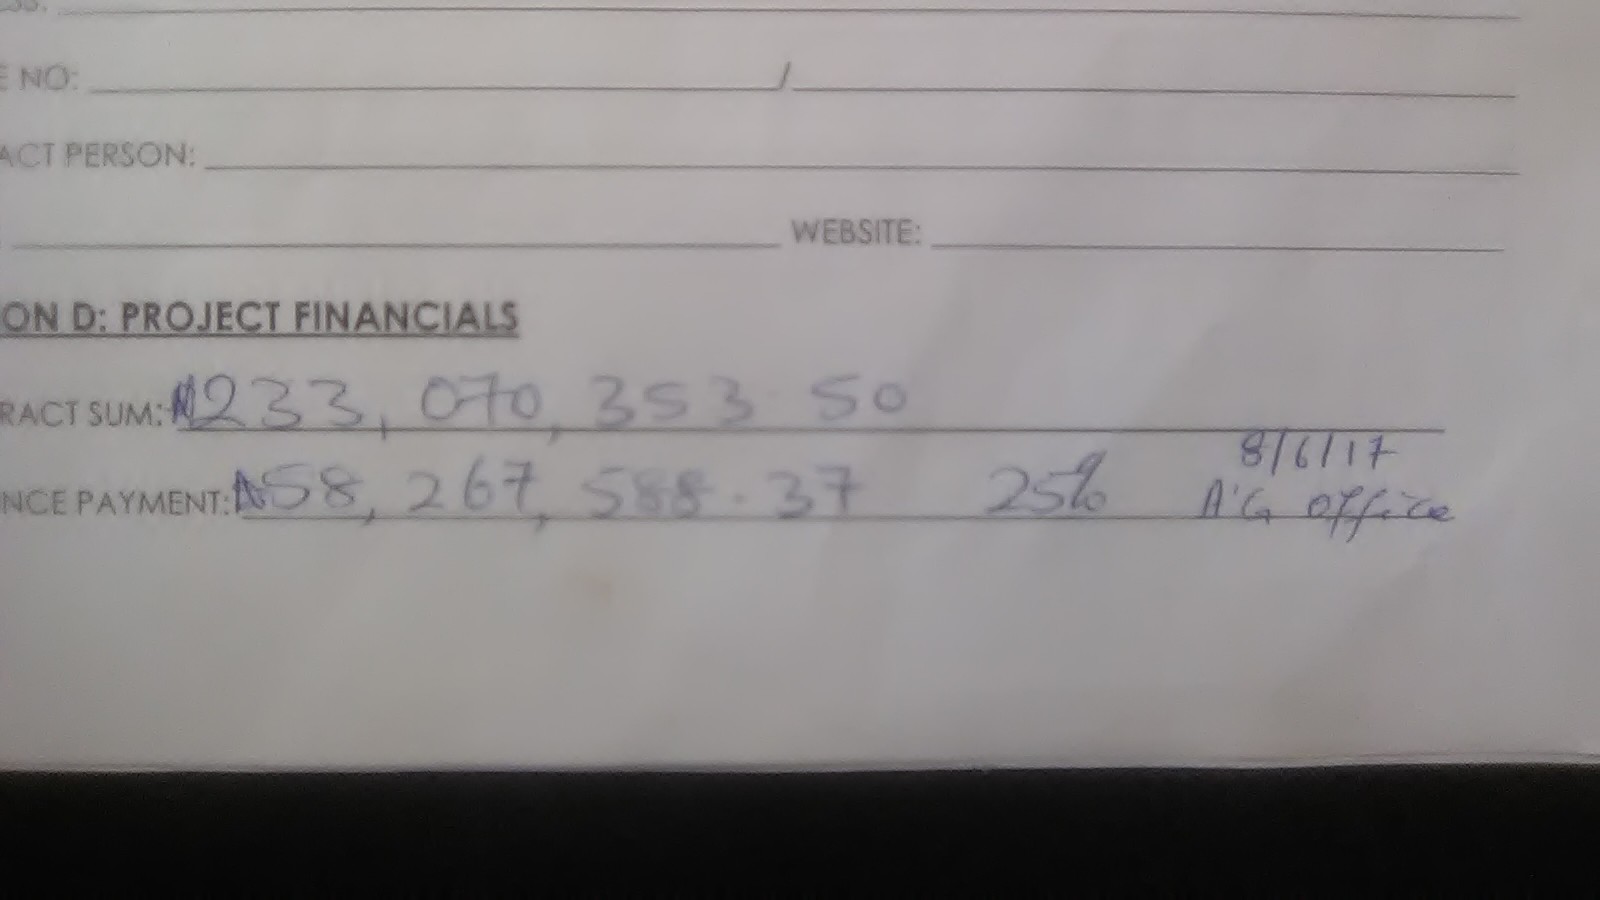 E NO: /
ACT PERSON:
WEBSITE:
ON D: PROJECT FINANCIALS
RACT SUM: ₦233, 070, 353 50
8/6/17
NCE PAYMENT: ₦58, 267, 588.37 25% A'G office